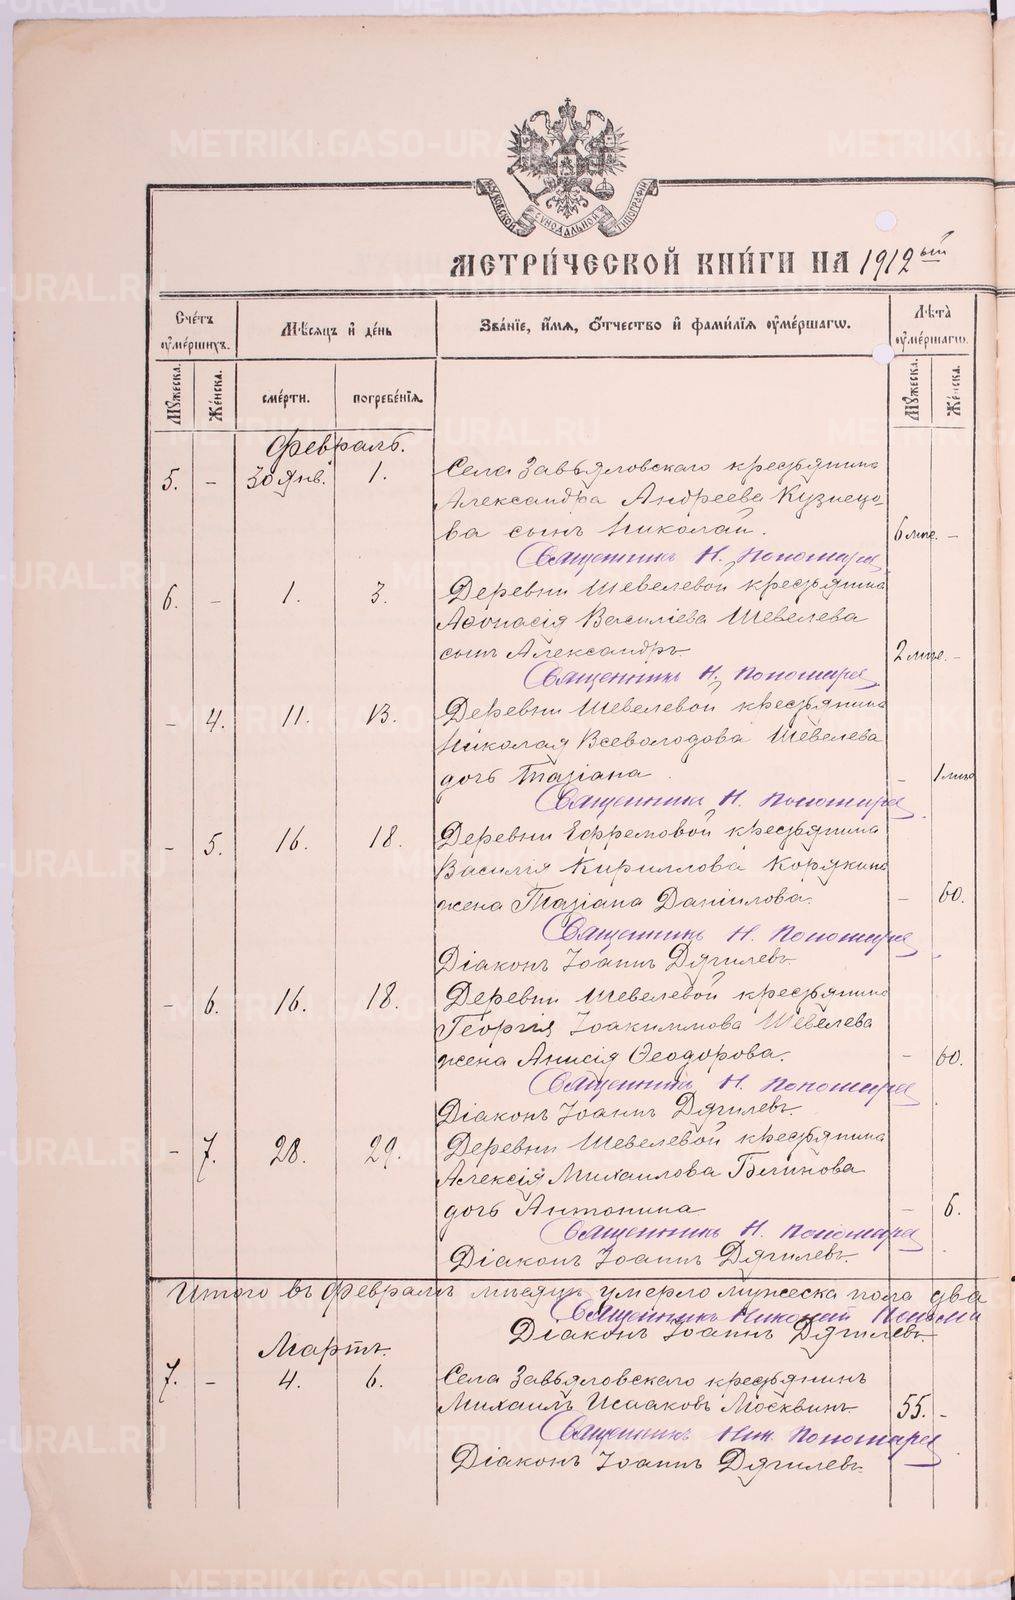 МОСКОВСКОЙ СУНОДАЛЬНОЙ ТИПОГРАФІИ
МЕТРИ́ЧЕСКОЙ КНИ́ГИ НА 1912ый
Сче́тъ ᲂу҆ме́ршихъ.
Мѣ́сяцъ и҆ де́нь
Зва́нїе, и҆́мѧ, ѻ҆́тчество и҆ фами́лїѧ ᲂу҆ме́ршагѡ.
Лѣ́та ᲂу҆ме́ршагѡ.
Мꙋ́жеска.
Же́нска.
сме́рти.
погребе́нїѧ.
Мꙋ́жеска.
Же́нска.
Февраль.
5. - 30 Янв. 1. Села Завьяловскаго крестьянина
Александра Андреева Кузнецо-
ва сынъ Николай. 6 мѣс. -
Священникъ Н. Пономарев
6. - 1. 3. Деревни Шевелевой крестьянина
Аѳонасія Василіева Шевелева
сынъ Александръ. 2 мѣс. -
Священникъ Н. Пономарев
- 4. 11. 13. Деревни Шевелевой крестьянина
Николая Всеволодова Шевелева
дочь Татіана. - 1 мѣс
Священникъ Н. Пономарев
- 5. 16. 18. Деревни Ефремовой крестьянина
Василія Кириллова Корякина
жена Татіана Даніилова. - 60.
Священникъ Н. Пономарев
Діаконъ Іоаннъ Дягилевъ
- 6. 16. 18. Деревни Шевелевой крестьянина
Георгія Іоакимова Шевелева
жена Анисія Ѳеодорова. - 60.
Священникъ Н. Пономарев
Діаконъ Іоаннъ Дягилевъ.
- 7. 28. 29. Деревни Шевелевой крестьянина
Алексія Михаилова
дочь Антонина - 6.
Священникъ Н. Пономарев
Діаконъ Іоаннъ Дягилевъ.
Итого въ Февралѣ мѣсяцѣ умерло мужеска пола два
Священникъ Николай Пономи
Діаконъ Іоаннъ Дягилевъ
Мартъ.
7. - 4. 6. Села Завьяловскаго крестьянинъ
Михаилъ Исааковъ Москвинъ. 55. -
Священникъ Ник. Пономарев
Діаконъ Іоаннъ Дягилевъ.
METRIKI.GASO-URAL.RU